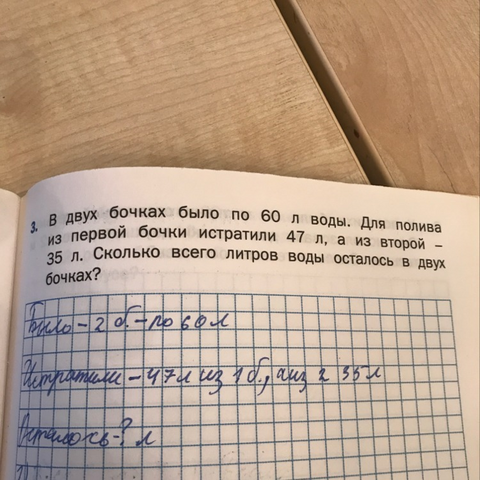 3. В двух бочках было по 60 л воды. Для полива
из первой бочки истратили 47 л, а из второй –
35 л. Сколько всего литров воды осталось в двух
бочках?
Было – 2 б. – по 60 л
Истратили – 47 л из 1 б., а из 2 35 л
Осталось – ? л